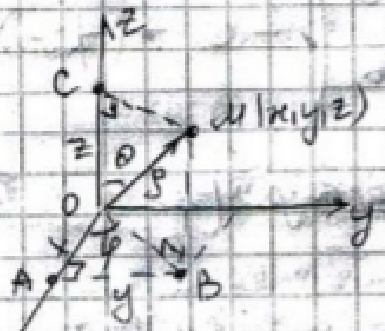 z
C
M(x,y,z)
z
θ
ρ
O
y
φ
A
y
B